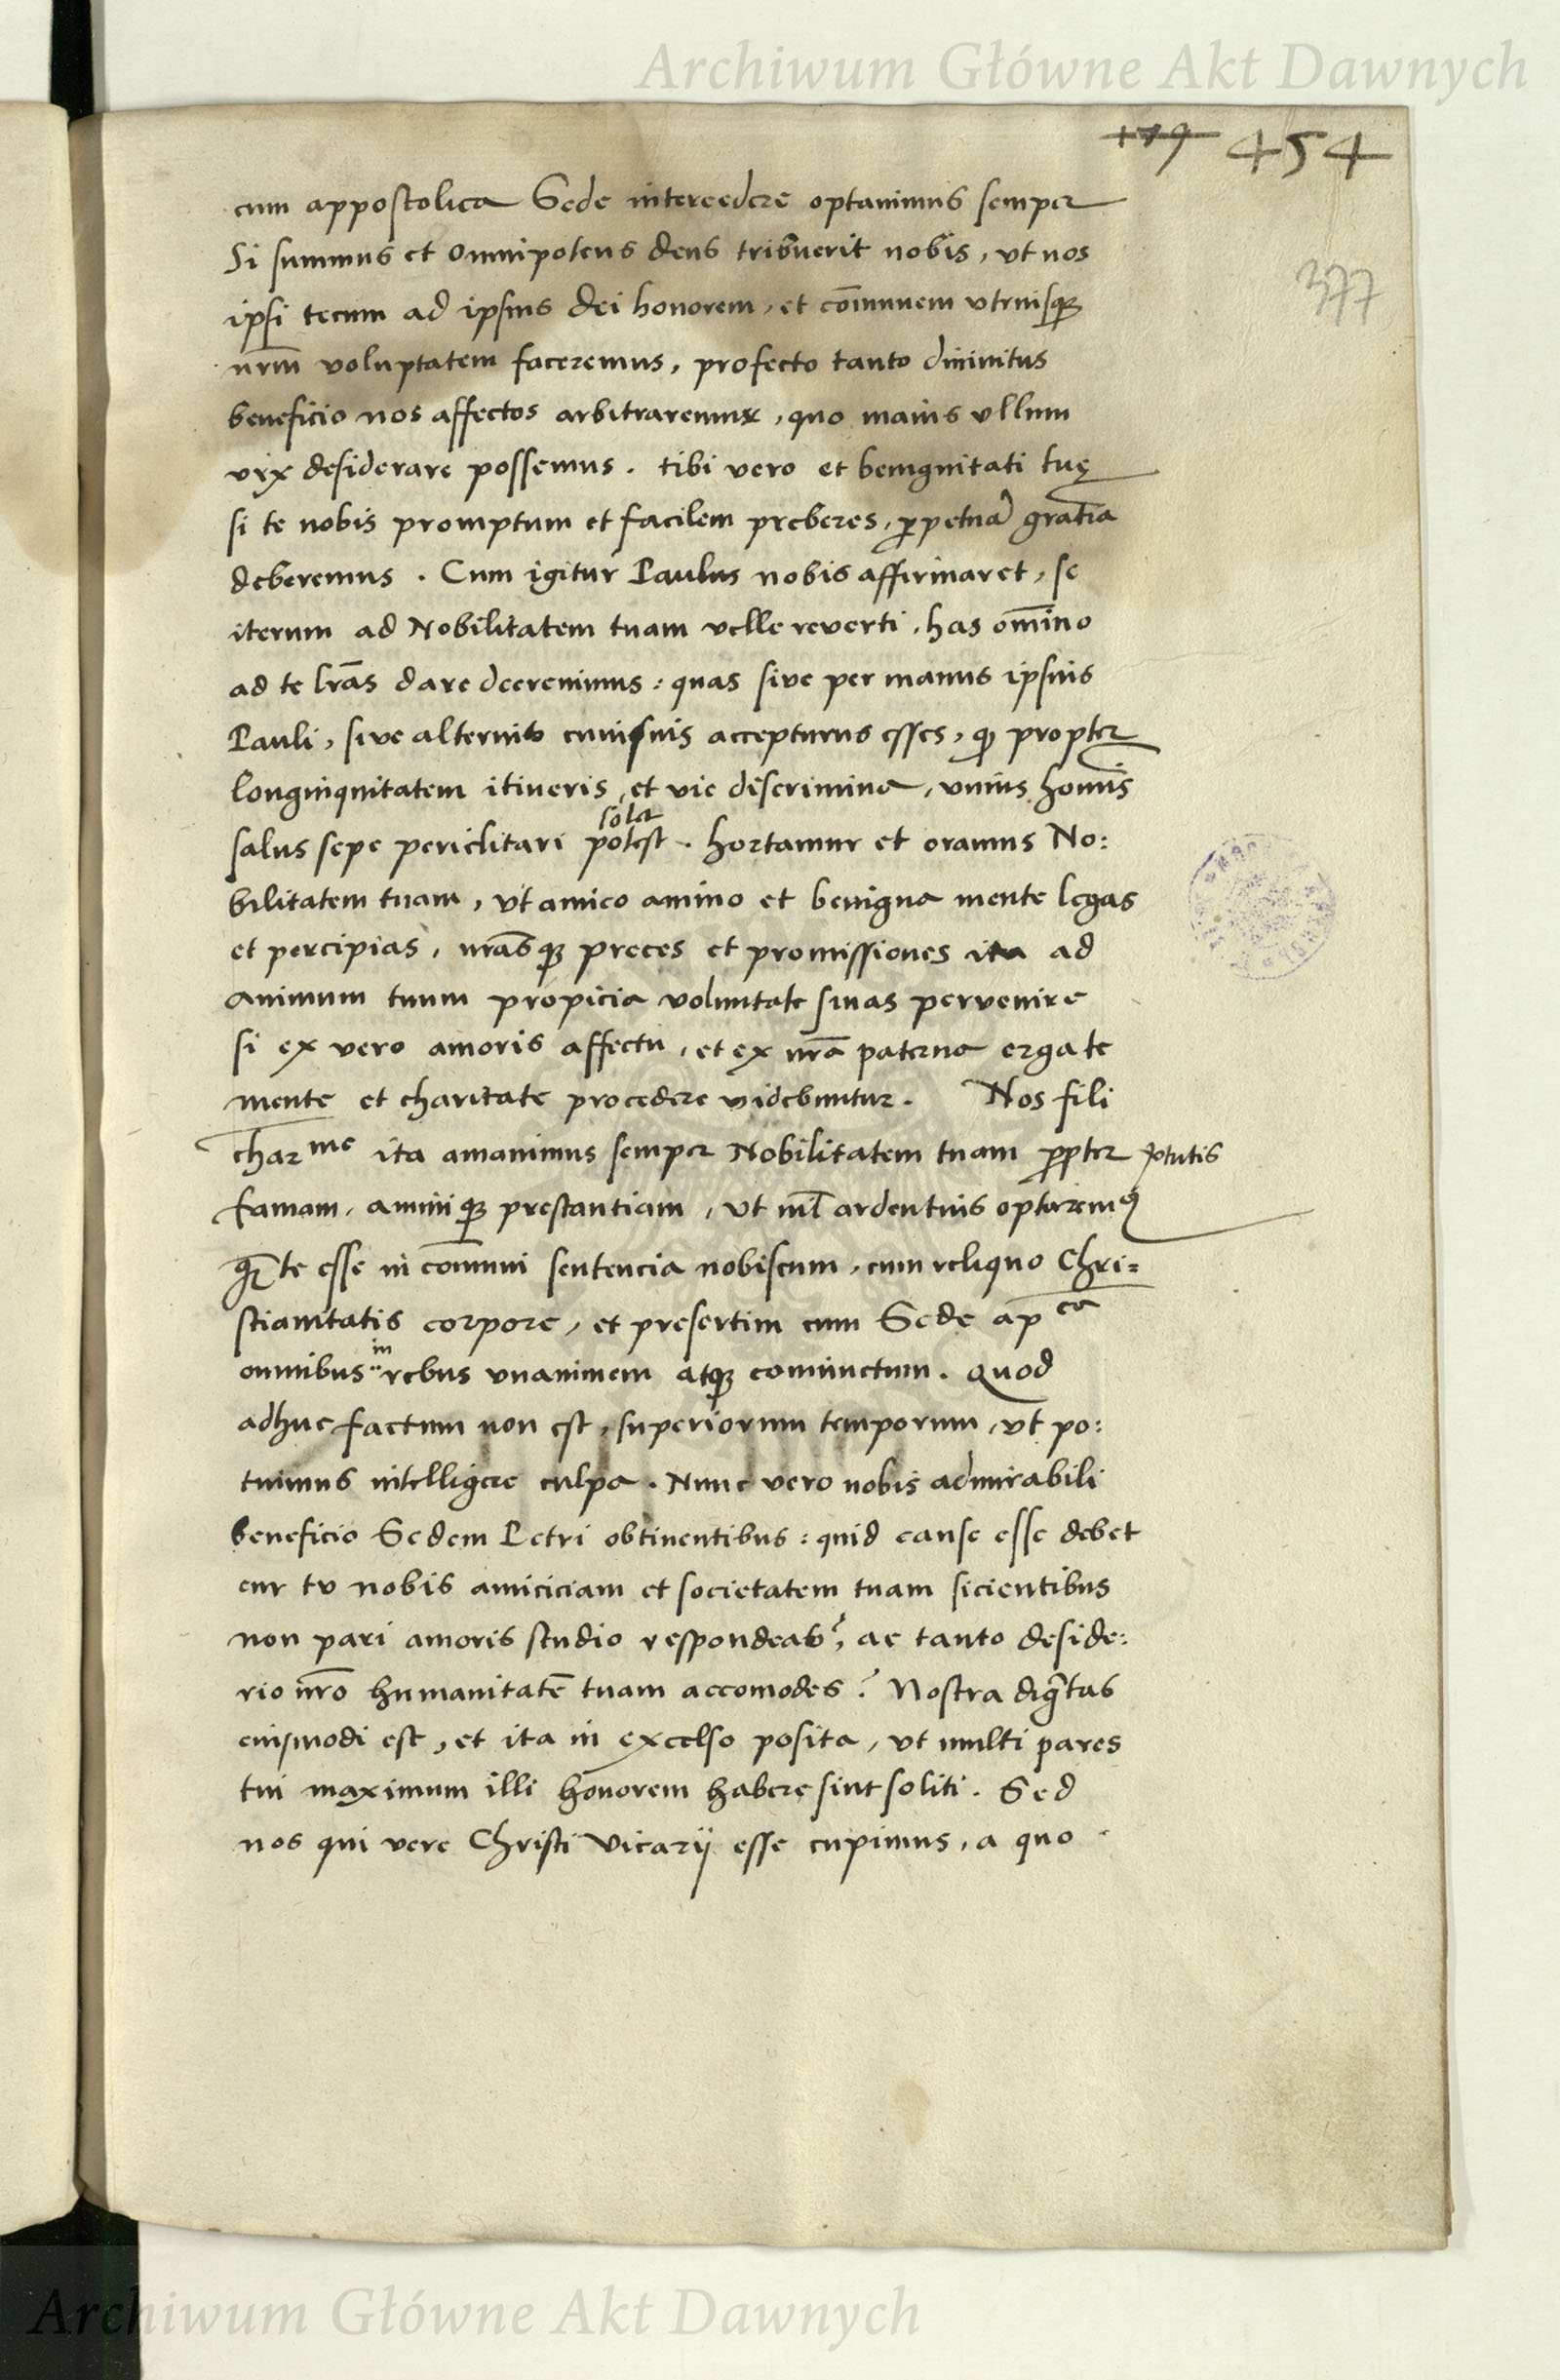 Archiwum Główne Akt Dawnych
179 454
377
cum appostolica Sede intercedere optavimus semper
Si summus et omnipotens deus tribuerit nobis, vt nos
ipsi tecum ad ipsius dei honorem, et cōmunem vtriusqꝫ
nr̄m voluptatem faceremus, profecto tanto diuinitus
beneficio nos affectos arbitraremur, quo maius vllum
vix desiderare possemus. tibi vero et benignitati tuę
si te nobis promptum et facilem preberes, ꝑpetuā gratiā
deberemus. Cum igitur Paulus nobis affirmaret, se
iterum ad Nobilitatem tuam velle reverti, has om̄ino
ad te lr̄as dare decrevimus: quas sive per manus ipsius
Pauli, sive alterius cuiusuis accepturus esses, qꝫ propter
longinquitatem itineris, et vie discrimina, vnius homīs
solet
salus sepe periclitari potest. hortamur et oramus No:
bilitatem tuam, vt amico animo et benigna mente legas
et percipias, nr̄asqꝫ preces et promissiones ita ad
animum tuum propicia voluntate sinas pervenire
si ex vero amoris affectu, et ex nr̄a paterna erga te
mente et charitate procedere videbuntur. Nos fili
charme ita amavimus semper Nobilitatem tuam ꝓpter
famam, animiqꝫ prestantiam, vt nil̄ ardentius optaremꝰ
te esse in com̄uni sentencia nobiscum, cum reliquo Chri=
stianitatis corpore, et presertim cum Sede apca
in
omnibus rebus vnanimem atqꝫ coniunctum. Quod
adhuc factum non est, superiorum temporum, vt po:
tuimus intelligere culpa. Nunc vero nobis admirabili
beneficio Sedem Petri obtinentibus: quid cause esse debet
cur tu nobis amiciciam et societatem tuam sicientibus
non pari amoris studio respondeas?, ac tanto deside:
rio nr̄o humanitatē tuam accomodes? Nostra diḡtas
eiusmodi est, et ita in excelso posita, vt multi pares
tui maximum illi honorem habere sint soliti. Sed
nos qui vere Christi Vicarij esse cupimus, a quo
Archiwum Główne Akt Dawnych